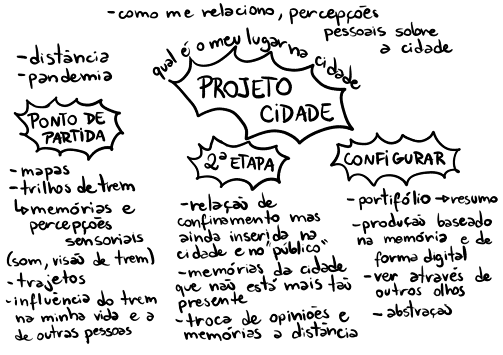 -como me relaciono, percepções
pessoais sobre
a cidade
qual é o meu lugar na cidade
PROJETO
CIDADE
-distância
-pandemia
PONTO DE
PARTIDA
-mapas
-trilhos de trem
↳memórias e
percepções
sensoriais
(som, visão de trem)
-trajetos
-influência do trem
na minha vida e a
de outras pessoas
2ª ETAPA
-relação de
confinamento mas
ainda inserida na
cidade e no "público"
-memórias da cidade
que não está mais tão
presente
-troca de opiniões e
memórias a distância
CONFIGURAR
-portifólio →resumo
-produção baseado
na memória e de
forma digital
-ver através de
outros olhos
-abstração